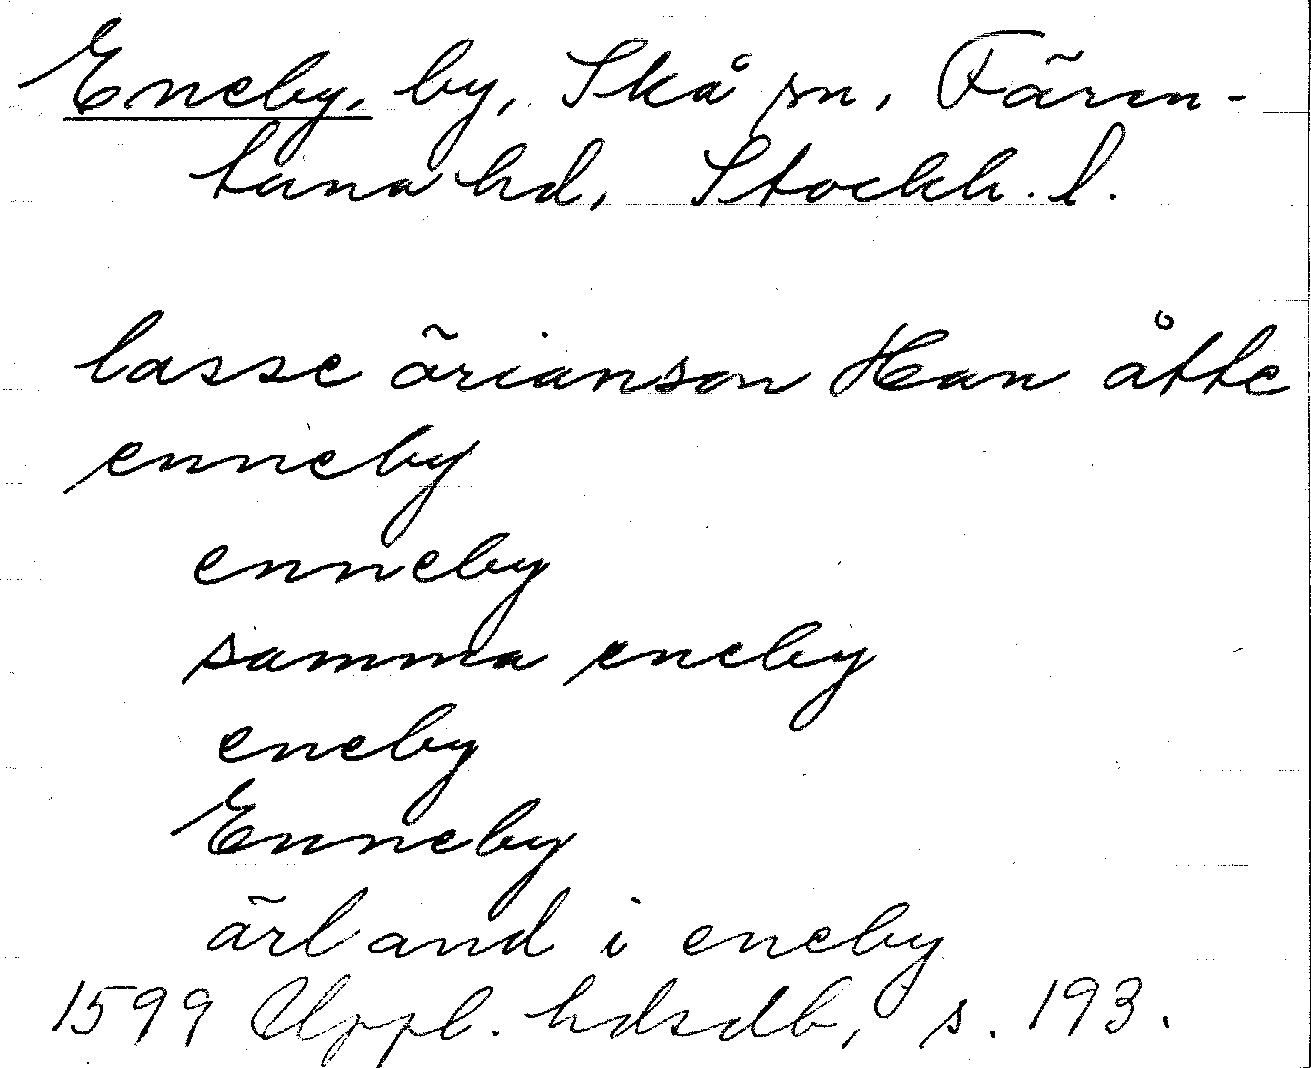 Eneby, by, Skå sn, Fären-
tuna hd, Stockh. l.
lasse örianson Han åtte
enneby
enneby
samma eneby
eneby
Enneby
ärland i eneby
1599 Uppl. hdsdb, s. 193.